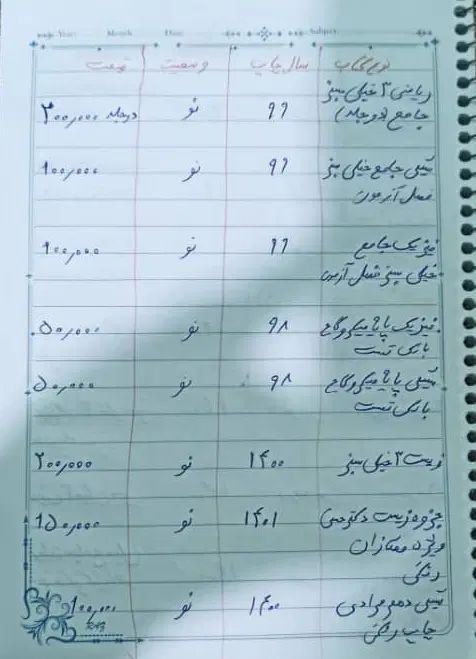 Year: Month: Date: Subject:
نوع کتاب سال چاپ وضعیت قیمت
ریاضی ۳ خیلی سبز
جامع (دو جلد) ۹۹ نو دو جلد ۲۰۰,۰۰۰
شیمی جامع خیلی سبز ۹۹ نو ۱۰۰,۰۰۰
فصل آزمون
فیزیک جامع ۹۹ نو ۱۰۰,۰۰۰
خیلی سبز فصل آزمون
فیزیک پایه میکرو گاج ۹۸ نو ۵۰,۰۰۰
بانک تست
شیمی پایه میکرو گاج ۹۸ نو ۵۰,۰۰۰
بانک تست
زیست ۳ خیلی سبز ۱۴۰۰ نو ۲۰۰,۰۰۰
جزوه زیست دکتر ۱۴۰۱ نو ۱۵۰,۰۰۰
ویژه ممتازان
رنگی
شیمی مرادی ۱۴۰۰ نو ۱۰۰,۰۰۰
چاپ رنگی